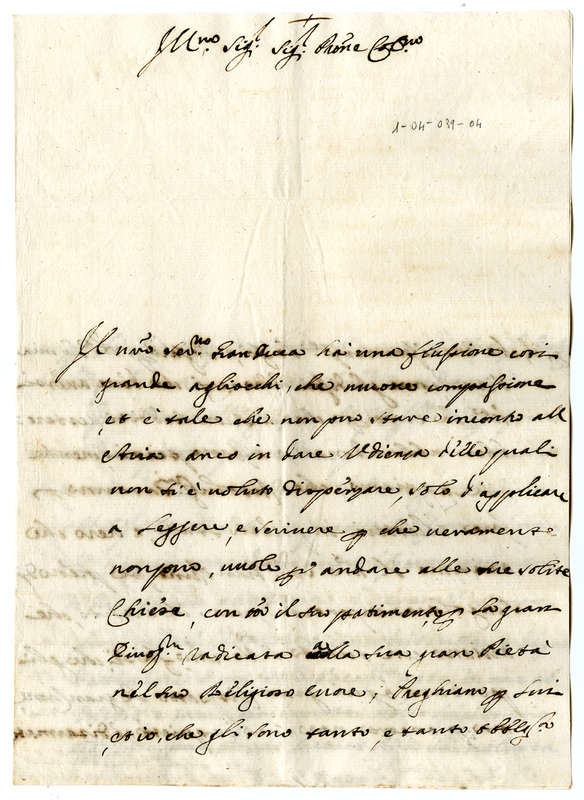 Ill.mo Sig.r Sig.r Pron'e Col.mo
1-04-039-04
Il nr̃o Ser.mo Granduca hà una flussione cosi
grande agliocchi, che muove compassione
et è tale che non può stare incontro all
Aria anco in dare Udienza delle quali
non si è voluto dispensare, solo d'applicare
a leggere, e scrivere che veramente
non può, vuole andare alle sue solite
Chiese, con il suo patimento, la gran
radicata la sua gran Pietà
nel suo Religioso cuore; Preghiam p lui
et io, che gli sono tanto, e tanto obblig.to